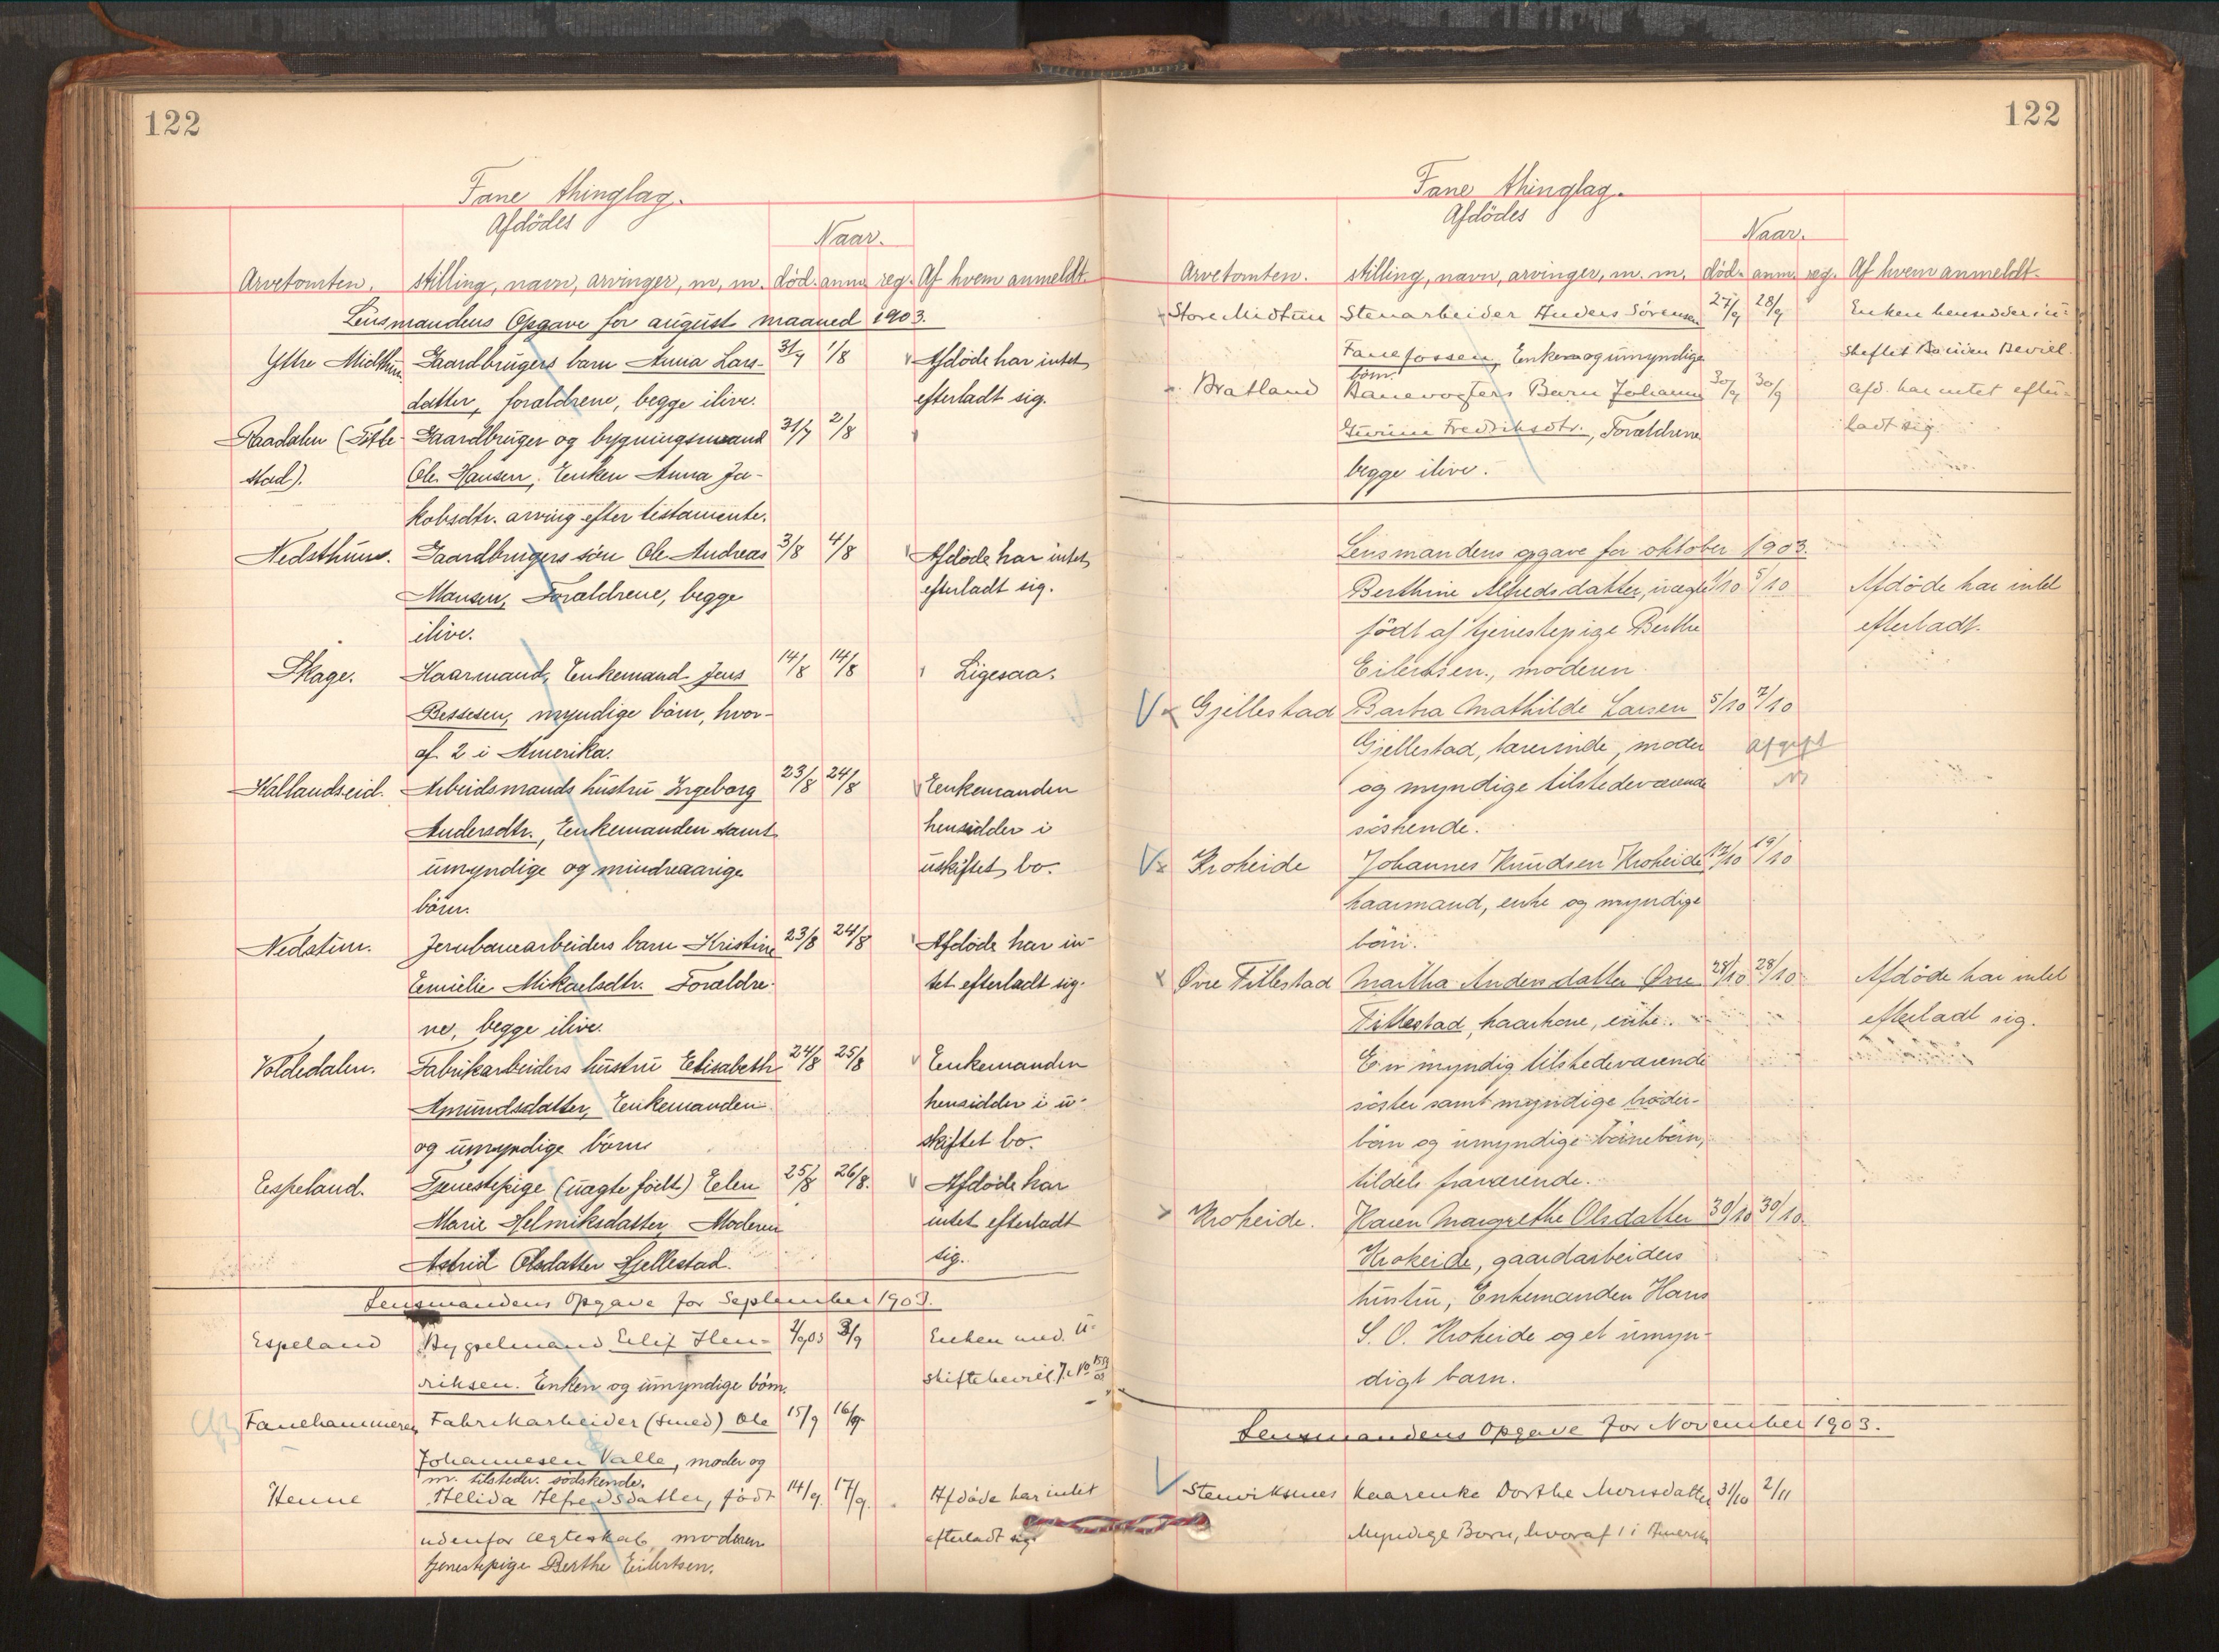 122
Fane thinglag.
Afdödes
Naar.
Arvetomten. stilling, navn, arvinger, m. m. död. anm. reg. Af hvem anmeldt.
Lensmandens Opgave for august maaned 1903.
Ytre Midthun Gaardbrugers barn Anna Lars- 31/7 1/8 Afdöde har intet
datter, foraldrene, begge ilive. efterladt sig.
Raadalen (Title- Gaardbruger og bygningsmand 31/7 2/8
stad). Ole Hansen. Enken Anna Ja-
kobsdtr. arving efter testamente.
Nedsthuns. Gaardbrugers sön Ole Andreas 3/8 4/8 Afdöde har intet
Monsen, Foraldrene, begge efterladt sig.
ilive.
Skage. Kaarmand, Enkemand Jens 14/8 14/8 Ligesaa.
Bessesen, myndige börn, hvor-
af 2 i Amerika.
Kallandseid. Arbeidsmands hustru Ingeborg 23/8 24/8 Enkemanden
Andersdtr., Enkemanden samt hensidder i
umyndige og mindreaarige uskiftet bo.
börn.
Nedstun. Jernbanearbeiders barn Kristine 23/8 24/8 Afdöde har in-
Emilie Mikaelsdtr. Foraldre- tet efterladt sig.
ne, begge ilive.
Voldedalen. Fabrikarbeiders hustru Elisabeth 24/8 25/8 Enkemanden
Amundsdatter, Enkemanden hensidder i u-
og umyndige börn skiftet bo.
Espeland. Tjenestepige (uagte födt) Elen 25/8 26/8. Afdöde har
Marie Helmiksdatter, Moderen intet efterladt
Astrid Olsdatter Hjellestad. sig.
Lensmandens Opgave for September 1903.
Espeland Bygselmand Elif Hen- 2/9 03 3/9 Enken med. u-
riksen. Enken og umyndige börn. skiftebevil.
Fanehammeren Fabrikarbeider (smed) Ole 15/9 16/9
Johannesen Valle, moder og
m. tilstedev. sødskende.
Henne Allida Alfredsdatter, født 14/9. 17/9. Afdøde har intet
udenfor ægteskab, moderen efterladt sig
tjenestepige Berthe Eilertsen.
122
Fane thinglag.
Afdödes
Naar.
Arvetomten. stilling, navn, arvinger, m. m. död. anm. reg. Af hvem anmeldt.
Store Midtun Stenarbeider Anders Sörensen 27/9 28/9 Enken hensidder i u-
Fanefossen, Enken og umyndige skiftet Bo iflg Bevil.
börn.
Bratland Banevogters Barn Johanna 30/9 30/9 Afd. har intet efter-
Gurine Fredriksdtr., Forældrene ladt sig.
begge ilive.
Lensmandens opgave for oktober 1903.
Berthine Alfredsdatter, uægte 1/10 5/10 Afdöde har intet
födt af tjenestepige Berthe efterladt.
Eilertsen, moderen.
Gjellestad Barbra Mathilde Larsen 5/10 7/10
Gjellestad, lærerinde, moder afgift
og myndige tilstedeværende
söskende.
Krokeide Johannes Knudsen Krokeide 17/10 19/10
kaarmand, enke og myndige
börn.
Övre Titlestad Martha Andersdatter Övre 28/10 28/10 Afdöde har intet
Titlestad, kaarkone, enke. efterladt sig.
En myndig tilstedeværende
söster samt myndige broder-
börn og umyndige börnebörn,
tildels fraværende.
Krokeide. Karen Margrethe Olsdatter 30/10 30/10
Krokeide, gaardarbeiders
hustru, Enkemanden Hans
S. O. Krokeide og et umyn-
digt barn.
Lensmandens Opgave for November 1903.
Stenviksnes Kaarenke Dorthe Monsdatter 31/10 2/11
Myndige Børn, hvoraf 1 i Amerika